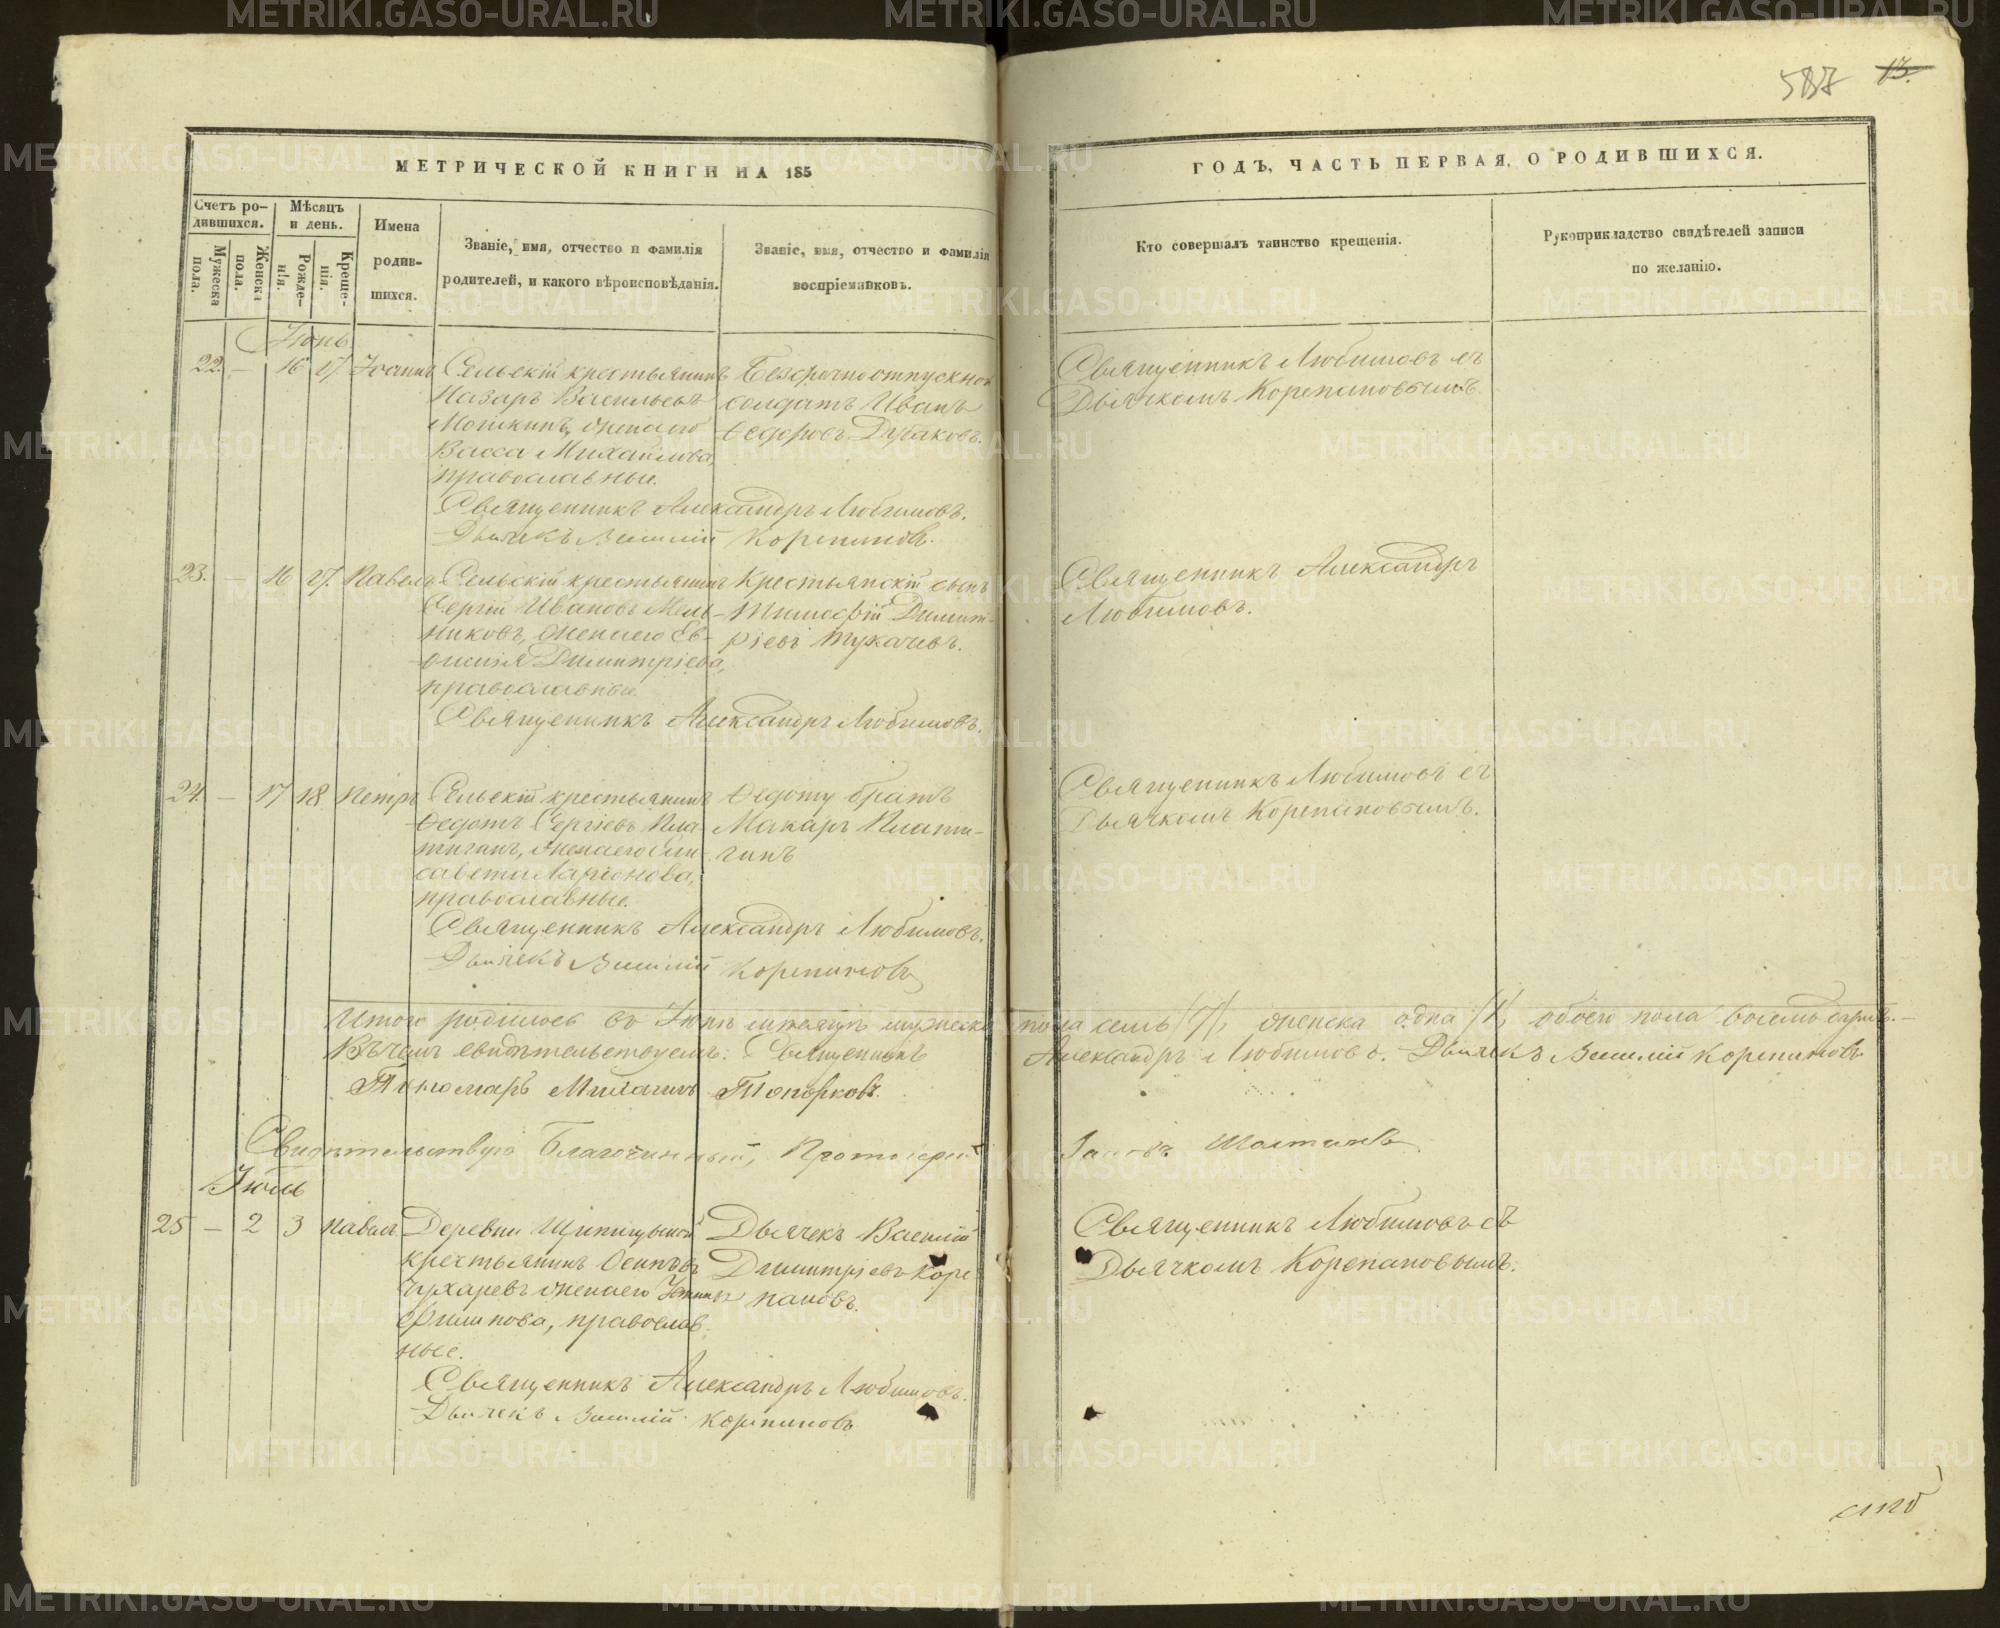 587 13.
МЕТРИЧЕСКОЙ КНИГИ НА 185
ГОДЪ, ЧАСТЬ ПЕРВАЯ, О РОДИВШИХСЯ.
Счетъ ро-
дившихся.
Мужеска пола.
Женска пола.
Мѣсяцъ
и день.
Рожде-
нія.
Креще-
нія.
Имена
родив-
шихся.
Званіе, имя, отчество и фамилія
родителей, и какого вѣроисповѣданія.
Званіе, имя, отчество и фамилія
воспріемниковъ.
Кто совершалъ таинство крещенія.
Рукоприкладство свидѣтелей записи
по желанію.
Іюнь
22. — 16 17 Іоаннъ
Сельскій крестьянинъ
Назаръ Васильевъ
Мошкинъ, жена его
Васса Михайлова,
православные.
Безсрочноотпускной
солдатъ Иванъ
Ѳедоровъ Дубаковъ.
Священникъ Любимовъ съ
Дьячкомъ Корепановымъ.
Священникъ Александръ Любимовъ.
Дьячекъ Василій Корепановъ.
23. — 16 17. Павелъ
Сельскій крестьянинъ
Сергій Ивановъ Мель-
никовъ, жена его Ев-
Димитріева,
православные.
Крестьянскій сынъ
Тимоѳій Димит-
ріевъ Тукачевъ.
Священникъ Александръ
Любимовъ.
Священникъ Александръ Любимовъ.
24. — 17 18 Петръ
Сельскій крестьянинъ
Ѳедотъ Сергіевъ Пла-
тигинъ, жена его Ели-
савета Ларіонова,
православные.
Ѳедоту братъ
Макаръ Плати-
гинъ
Священникъ Любимовъ съ
Дьячкомъ Корепановымъ.
Священникъ Александръ Любимовъ.
Дьячекъ Василій Корепановъ
Итого родилось въ Іюнѣ мѣсяцѣ мужеска пола семь /7/, женска одна /1/, обоего пола восемь
Въ чемъ свидѣтельствуемъ: Священникъ Александръ Любимовъ. Дьячекъ Василій Корепановъ
Пономарь Михаилъ Топорковъ.
Свидѣтельствую Благочинный, Протоіерей
Іюль
25 — 2 3 Павелъ
Деревни Щипицыной
крестьянинъ Осипъ
Чухаревъ жена его
Филипова, православ-
ные.
Дьячекъ Василій
Димитріевъ Коре-
пановъ.
Священникъ Любимовъ съ
Дьячкомъ Корепановымъ.
Священникъ Александръ Любимовъ.
Дьячекъ Василій Корепановъ
METRIKI.GASO-URAL.RU